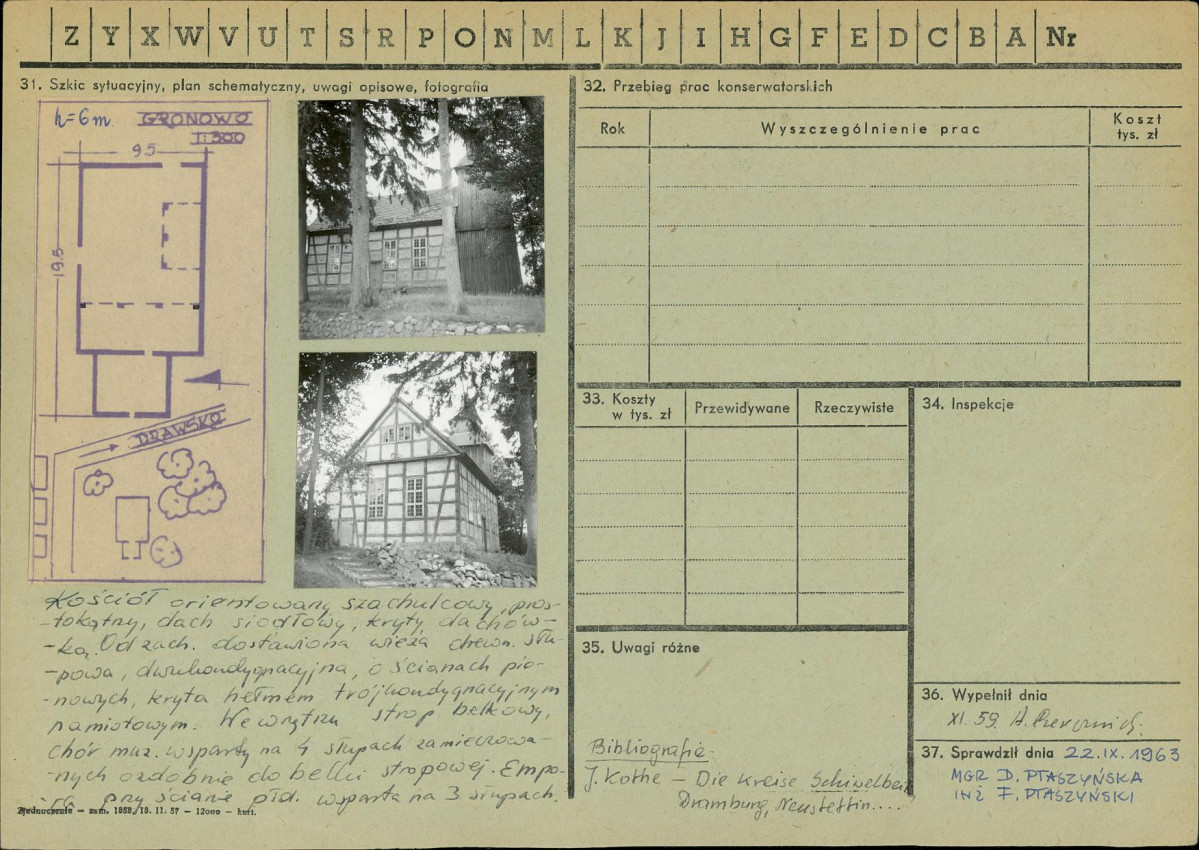 Z Y X W V U T S R P O N M L K J I H G F E D C B A Nr
31. Szkic sytuacyjny, plan schematyczny, uwagi opisowe, fotografia
h=6m GRONOWO
1:300
9.5
19.5
DRAWSKO
Kościół orientowany szachulcowy, pros-
-tokątny, dach siodłowy, kryty dachów-
-ką. Od zach. dostawiona wieża drewn. słu-
-powa, dwukondygnacyjna, o ścianach pio-
-nowych, kryta hełmem trójkondygnacyjnym
namiotowym. Wewnątrz strop belkowy,
chór muz. wsparty na 4 słupach zamieczowa-
-nych ozdobnie do belki stropowej. Empo-
-ra przy ścianie płd. wsparta na 3 słupach.
Zjednoczenie – zam. 1858, 18. 11. 57 – 12000 – kart.
32. Przebieg prac konserwatorskich
Rok
Wyszczególnienie prac
Koszt
tys. zł
33. Koszty
w tys. zł
Przewidywane
Rzeczywiste
34. Inspekcje
35. Uwagi różne
Bibliografia-
J. Kothe – Die Kreise Schivelbein
Dramburg, Neustettin....
36. Wypełnił dnia
XI. 59 A.
37. Sprawdził dnia 22.IX.1963
MGR D. PTASZYŃSKA
INŻ F. PTASZYŃSKI